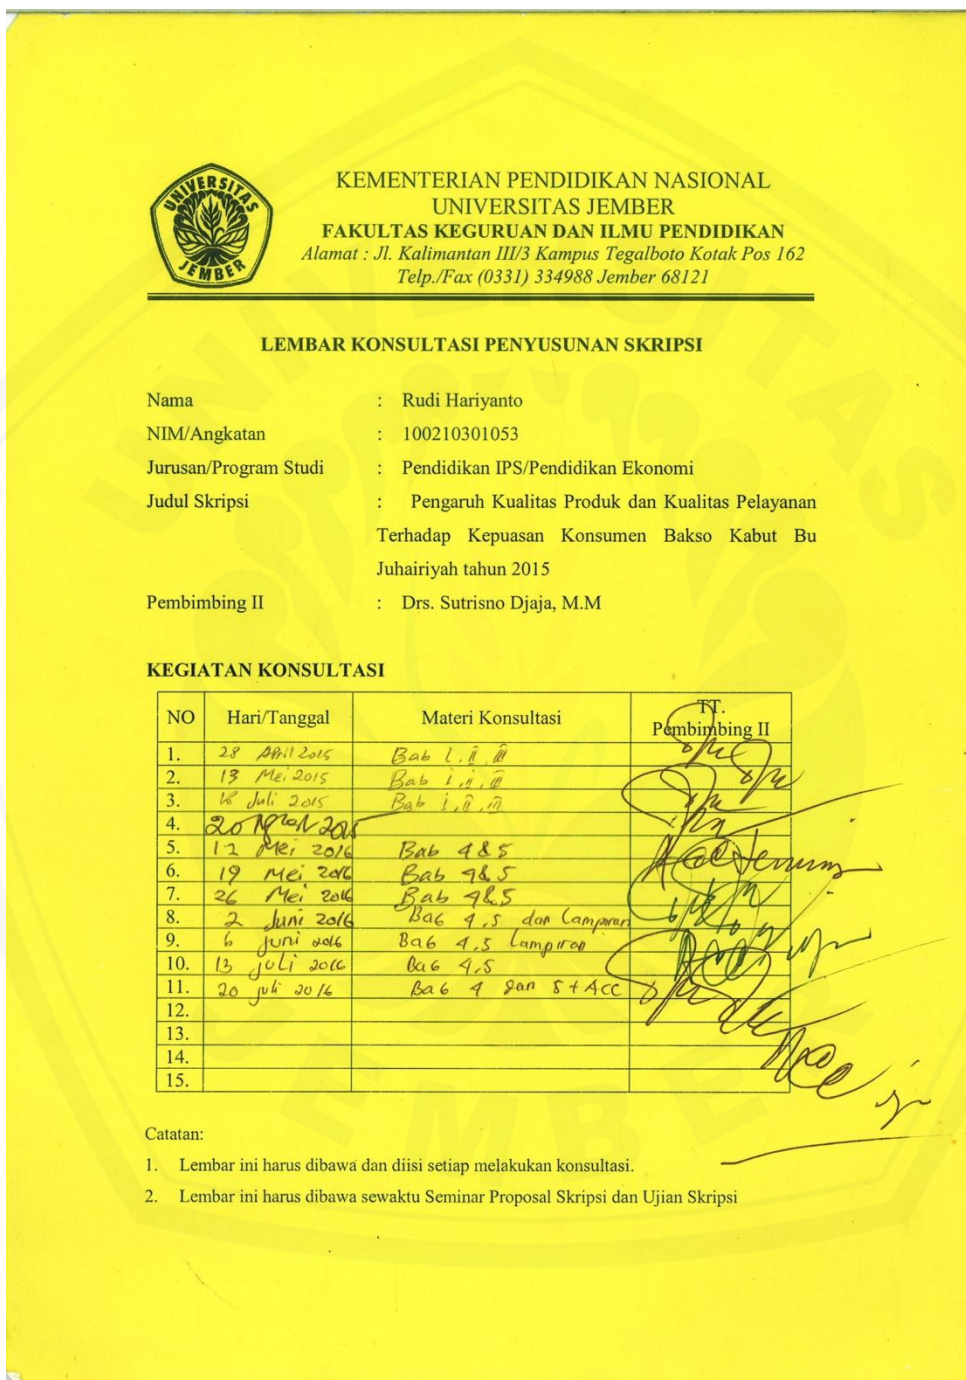 UNIVERSITAS
JEMBER
KEMENTERIAN PENDIDIKAN NASIONAL
UNIVERSITAS JEMBER
FAKULTAS KEGURUAN DAN ILMU PENDIDIKAN
Alamat : Jl. Kalimantan III/3 Kampus Tegalboto Kotak Pos 162
Telp./Fax (0331) 334988 Jember 68121
LEMBAR KONSULTASI PENYUSUNAN SKRIPSI
Nama : Rudi Hariyanto
NIM/Angkatan : 100210301053
Jurusan/Program Studi : Pendidikan IPS/Pendidikan Ekonomi
Judul Skripsi : Pengaruh Kualitas Produk dan Kualitas Pelayanan
Terhadap Kepuasan Konsumen Bakso Kabut Bu
Juhairiyah tahun 2015
Pembimbing II : Drs. Sutrisno Djaja, M.M
KEGIATAN KONSULTASI
NO Hari/Tanggal Materi Konsultasi TT. Pembimbing II
1. 28 April 2015 Bab I, II, III
2. 13 Mei 2015 Bab i, ii, iii
3. 18 Juli 2015 Bab i, ii, iii
4. 20
5. 12 Mei 2016 Bab 4&5
6. 19 Mei 2016 Bab 4&5
7. 26 Mei 2016 Bab 4&5
8. 2 Juni 2016 Bab 4,5 dan Lampiran
9. 6 Juni 2016 Bab 4,5 Lampiran
10. 13 juli 2016 Bab 4,5
11. 20 juli 2016 Bab 4 dan 5 + Acc
12.
13.
14.
15.
Catatan:
1. Lembar ini harus dibawa dan diisi setiap melakukan konsultasi.
2. Lembar ini harus dibawa sewaktu Seminar Proposal Skripsi dan Ujian Skripsi